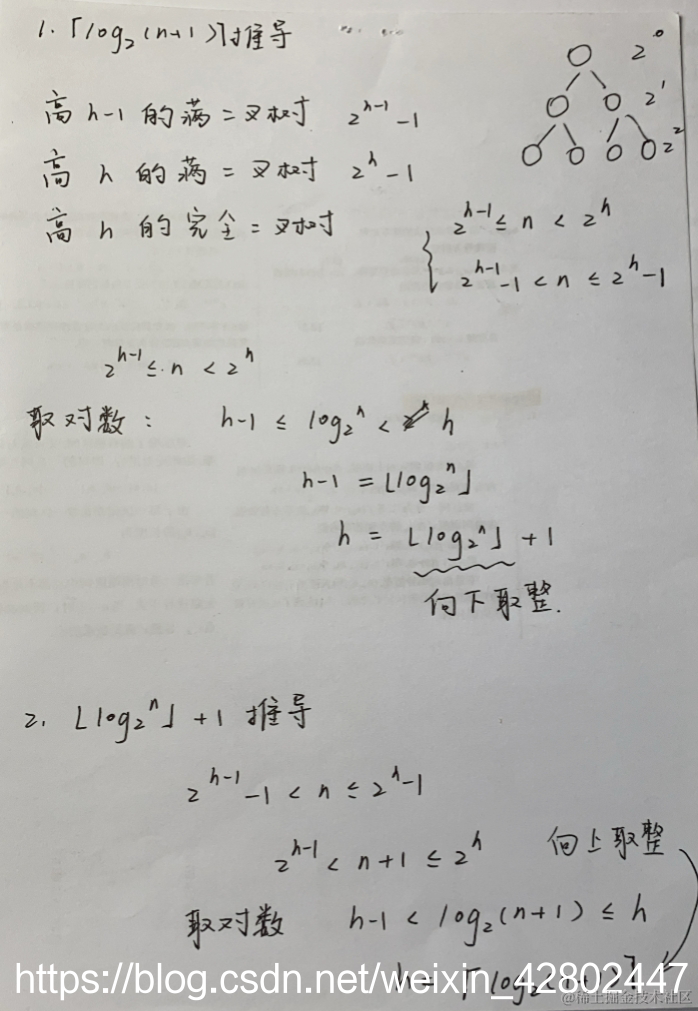 1. ⌈log₂(n+1)⌉推导
2⁰
2¹
2²
高 h-1 的满二叉树 2^(h-1) -1
高 h 的满二叉树 2^h -1
高 h 的完全二叉树
2^(h-1) ≤ n < 2^h
2^(h-1) -1 < n ≤ 2^h -1
2^(h-1) ≤ n < 2^h
取对数: h-1 ≤ log₂ⁿ < h
h-1 = ⌊log₂ⁿ⌋
h = ⌊log₂ⁿ⌋ + 1
向下取整.
2. ⌊log₂ⁿ⌋ +1 推导
2^(h-1) -1 < n ≤ 2^h -1
2^(h-1) < n+1 ≤ 2^h
向上取整
取对数 h-1 < log₂(n+1) ≤ h
h = ⌈log₂(n+1)⌉
https://blog.csdn.net/weixin_42802447
@稀土掘金技术社区